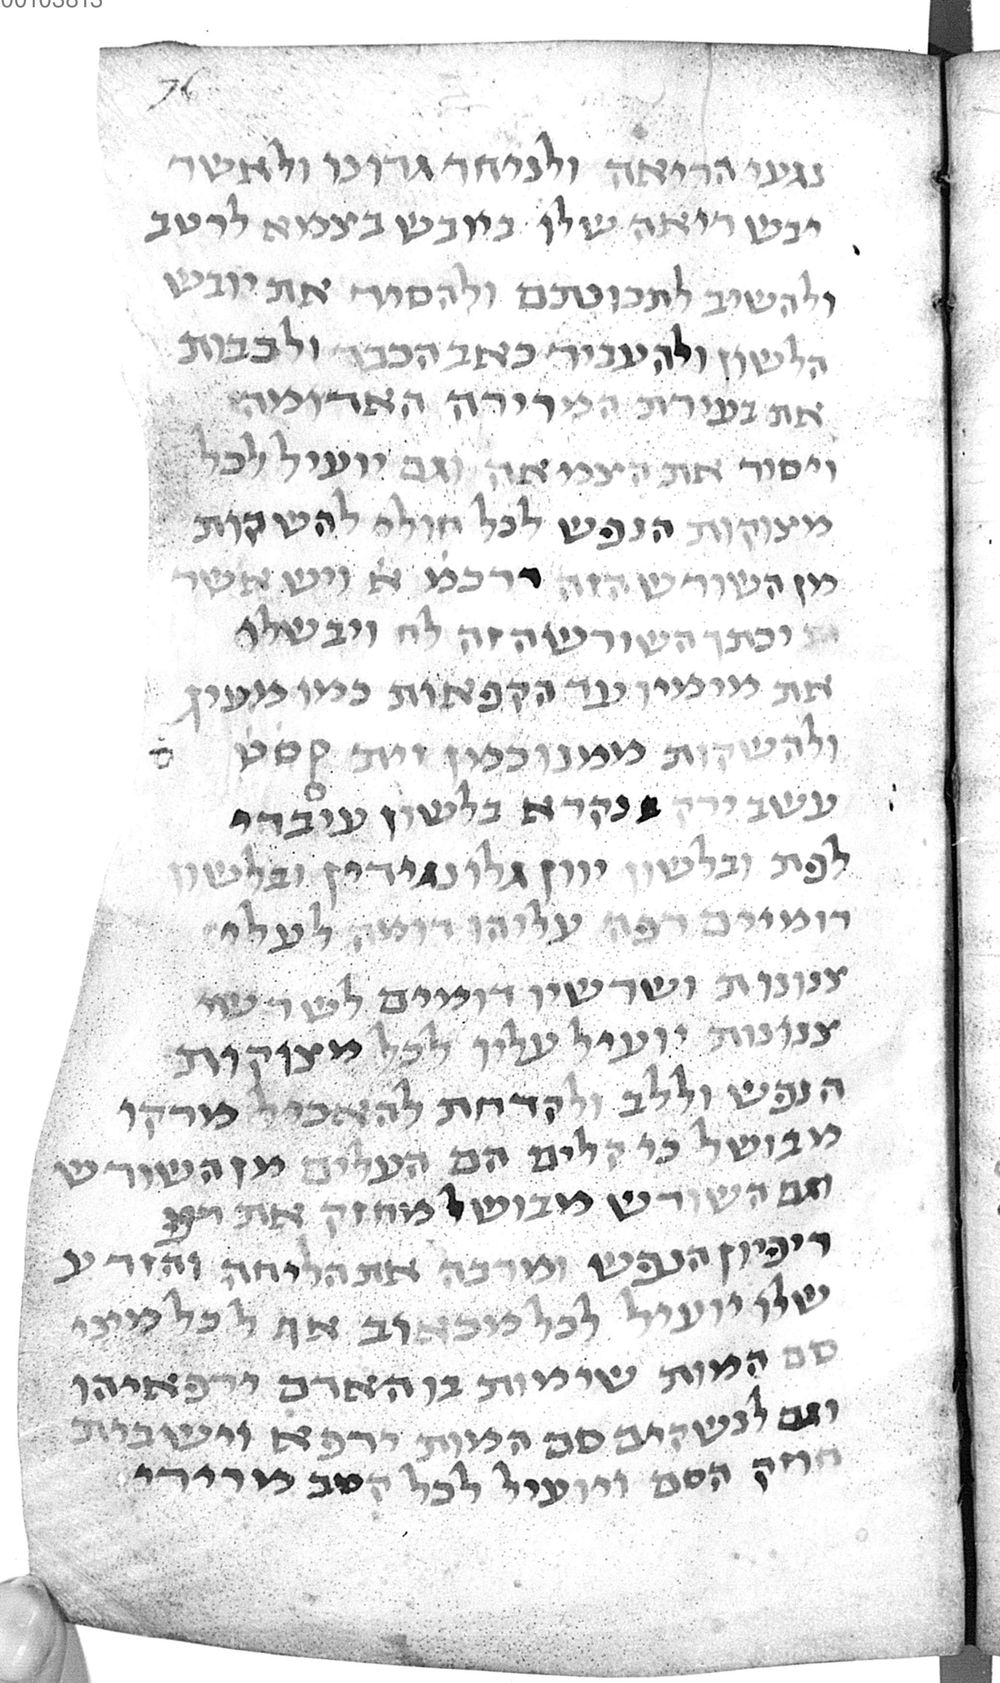 00103813
76
נגעי הריאה ולניחר גרונו ולאשר
יבש ריאה שלו ביובש בצמא לרטב
ולהשיב לתכונתם ולהסיר את יובש
הלשון ולהעביר כאב הכבד ולכבות
את בעירת המרירה האדומה
ויסיר את הצמיאה וגם יועיל לכל
מצוקות הנפש לכל חולי להשקות
מן השורש הזה דרכמ א ויש אשר
יכתך השורש הזה לח ויבשלו
את מימיו עד הקפאות כמו מעיין
ולהשקות ממנו כמין זית קסט
עשב ירק נקרא בלשון עיברי
לפת ובלשון יוון גלונגידין ובלשון
רומיים רפה עליהו דומה לעלי
צנונות ושרשיו דומים לשרשי
צנונות יועיל עליו לכל מצוקות
הנפש וללב ולקדחת להאכיל מרקו
מבושל כי קלים הם העלים מן השורש
וגם השורש מבושל מחזק את
ריפיון הנפש ומרבה את הליחה והזרע
שלו יועיל לכל מכאוב אף לכל מיני
סם המות שימות בו האדם ירפאיהו
וגם לנשקים סם המות ירפא וישבית
חוזק הסם ויועיל לכל קטב מרירי